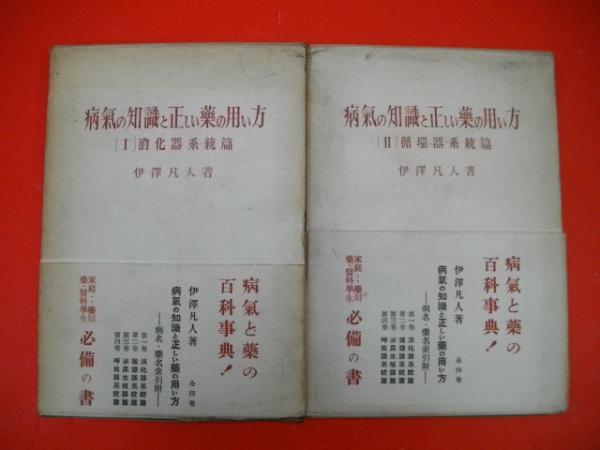 病氣の知識と正しい藥の用い方
[I]消化器系統篇
伊澤凡人著
病氣と藥の
百科事典!
伊澤凡人著
全四卷
病氣の知識と正しい藥の用い方
――病名・藥名索引附――
第一卷 消化器系統篇
第二卷 循環器系統篇
第三卷 泌尿生殖器篇
第四卷 呼吸器系統篇
家庭・藥局
藥・醫科學生
必備の書
病氣の知識と正しい藥の用い方
[II]循環器系統篇
伊澤凡人著
病氣と藥の
百科事典!
伊澤凡人著
全四卷
病氣の知識と正しい藥の用い方
――病名・藥名索引附――
第一卷 消化器系統篇
第二卷 循環器系統篇
第三卷 泌尿生殖器篇
第四卷 呼吸器系統篇
家庭・藥局
藥・醫科學生
必備の書